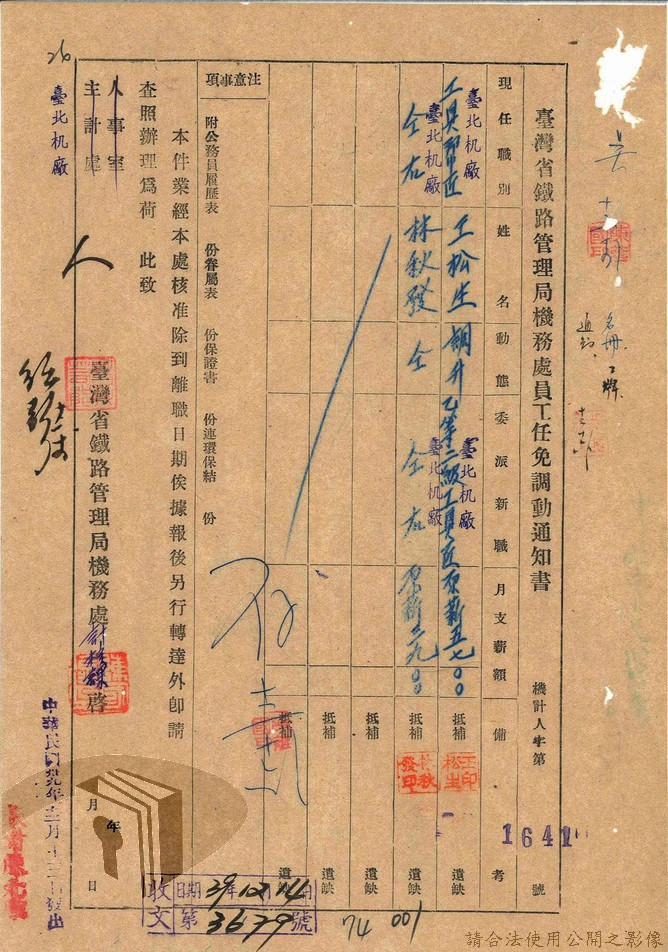 臺灣省鐵路管理局機務處員工任免調動通知書
機計人字第 1641 號
現任職別 姓名 動態 委派新職 月支薪額 備考
臺北机廠 工具幫匠 王松生 調升 臺北机廠 乙等二級工具匠 原薪五七〇〇 抵補 遺缺
臺北机廠 仝右 林秋發 仝 臺北机廠 仝右 原薪六九〇〇 抵補 遺缺
抵補 遺缺
抵補 遺缺
抵補 遺缺
王松生印
林秋發印
注意事項
附公務員履歷表 份眷屬表 份保證書 份連環保結 份
本件業經本處核准除到離職日期俟據報後另行轉達外卽請
查照辦理爲荷 此致
人事室
主計處
臺北机廠
臺灣省鐵路管理局機務處 啓
年 月 日
中華民國卅九年 月十三日發出
收文 日期 39年12月14日
第 3679 號
名冊
人
存
26
74 001
請合法使用公開之影像